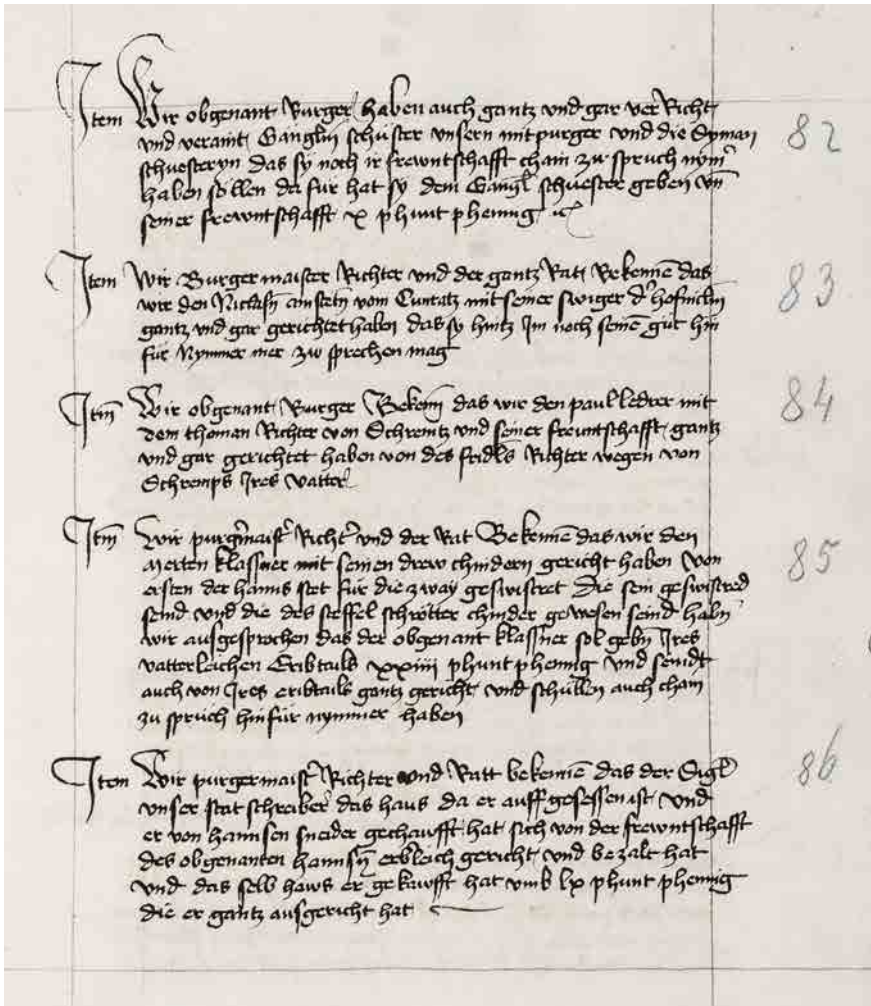 Item Wir obgenant Burger haben auch gantz vnd gar ver Richt
vnd veraint Ganglein schuster vnsern mitpurger vnd die Syman
schuesteryn das sy noch ir frewntschafft chain zw spruch nym̄
haben sollen der fur hat sy dem Gangl schuester geben vn̄
seiner frewntschafft x phunt phennig
82
Item Wir Burgermaister Richter vnd der gantz Rat Bekenne das
wir den vom Cunratz mit seiner swiger
gantz vnd gar gerichtet haben das sy hintz Im noch seinē gut hin
fur Nymmer mer zw sprechen mag
83
Itm̄ Wir obgenant Burger Bekenn̄ das wir den paul ledrer mit
dem thoman Richter von Schremtz vnd seiner freuntschafft gantz
vnd gar gerichtet haben von des fridls Richter wegen von
Schremps Ires vatter
84
Itm̄ Wir purgm̄aist̄ Richt̄ vnd der Rat Bekennē das wir den
Merten klassner mit seinen drew chindern gericht haben von
ersten der hanns stet fur die zway geswistret Die sein geswistred
seind vnd die des steffel schrötter chinder gewesen seind habn̄
wir ausgesprochen das der obgenant klassner sol gebn̄ Ires
vatterleichen Eribtails xxiiii phunt phennig vnd seindt
auch von Ires eribtails gantz gericht vnd schullen auch chain
zu spruch hinfur nymmer haben
85
Item Wir purgermaist̄ Richter vnd Ratt bekennē das der Sigl
vnser stat schreiber das haus da er auff gesessen ist vnd
er von hannsen sneider gechaufft hat sich von der frewntschafft
des obgenanten hannsn̄ erbleich gericht vnd bezalt hat
vnd das selb haws er gekawfft hat vmb lx phunt phennig
die er gantz ausgericht hat
86